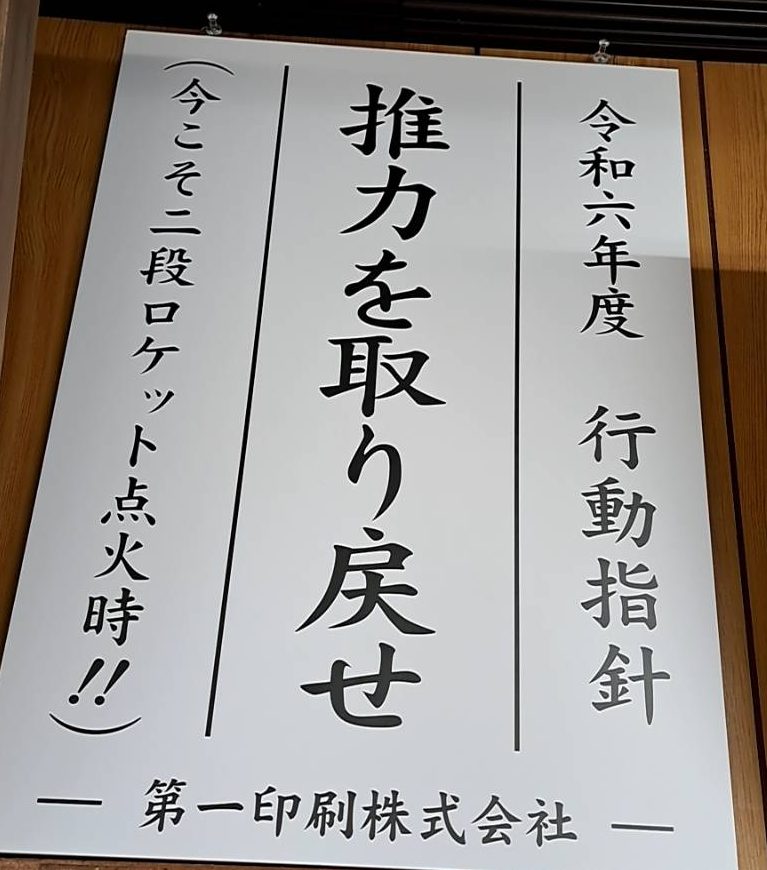 令和六年度　行動指針
推力を取り戻せ
（今こそ二段ロケット点火時!!）
― 第一印刷株式会社 ―